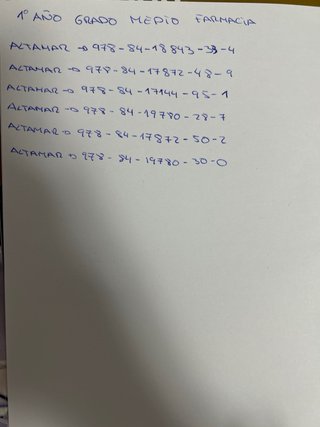 1º AÑO GRADO MEDIO FARMACIA
ALTAMAR → 978-84-18843-33-4
ALTAMAR → 978-84-17872-48-9
ALTAMAR → 978-84-17144-95-1
ALTAMAR → 978-84-19780-28-7
ALTAMAR → 978-84-17872-50-2
ALTAMAR → 978-84-19780-30-0